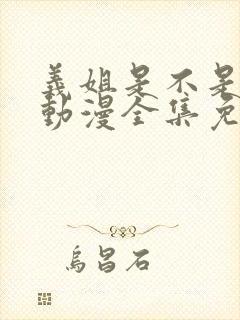 義姐是不是
動漫全集免
烏昌石